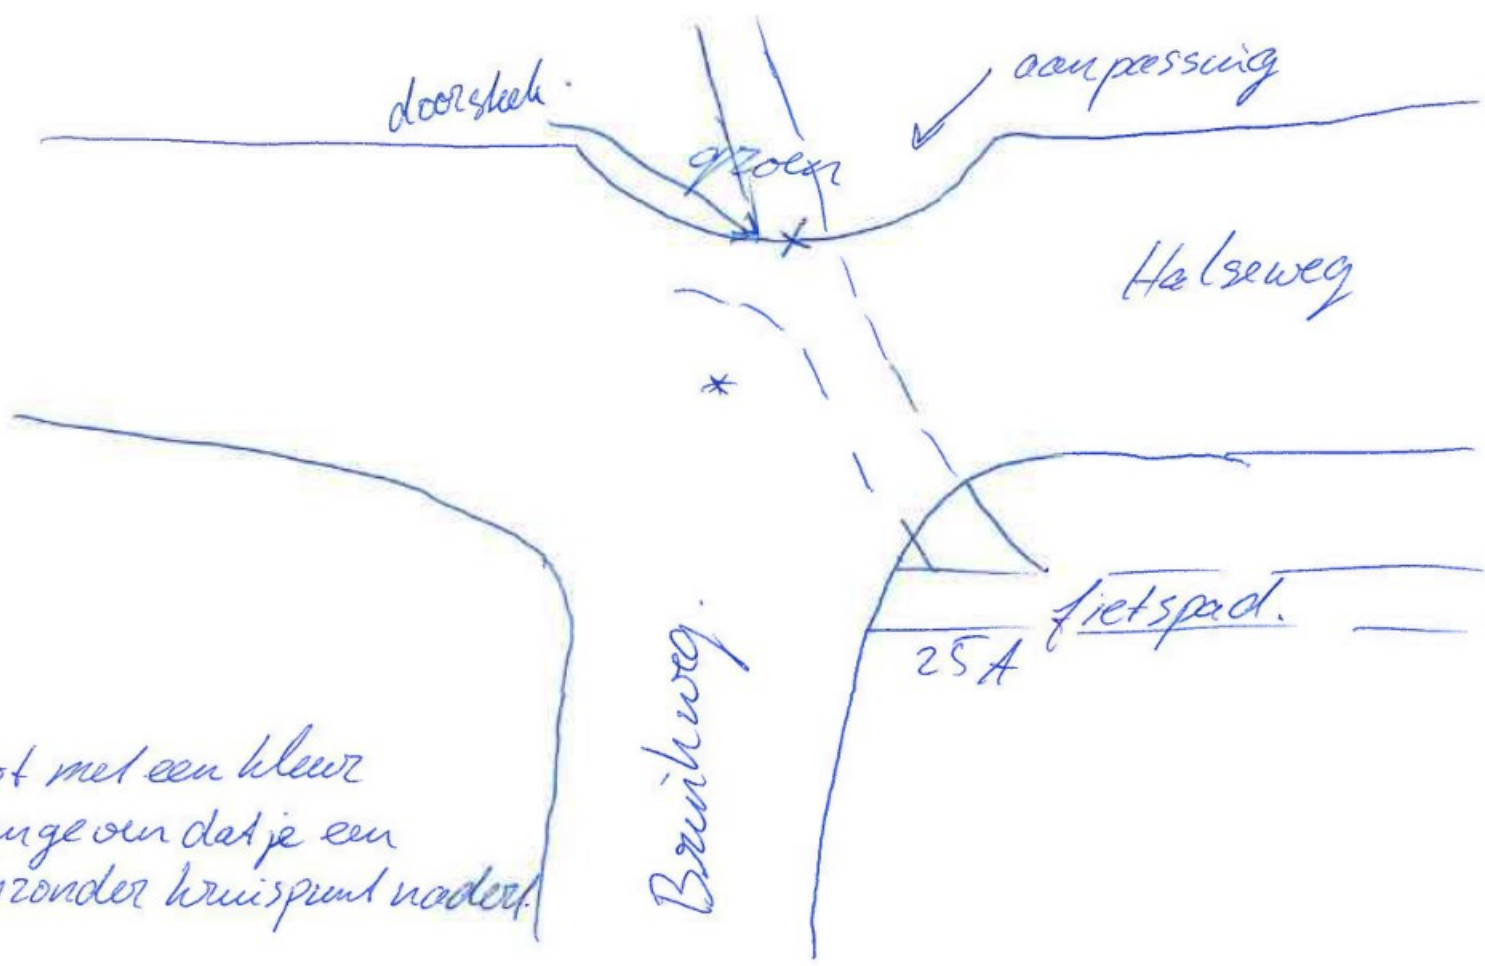 doorsteek.
aanpassing
groen
Halseweg
fietspad.
25A
Bruikweg.
met een kleur
dat je een
kruispunt nadert.